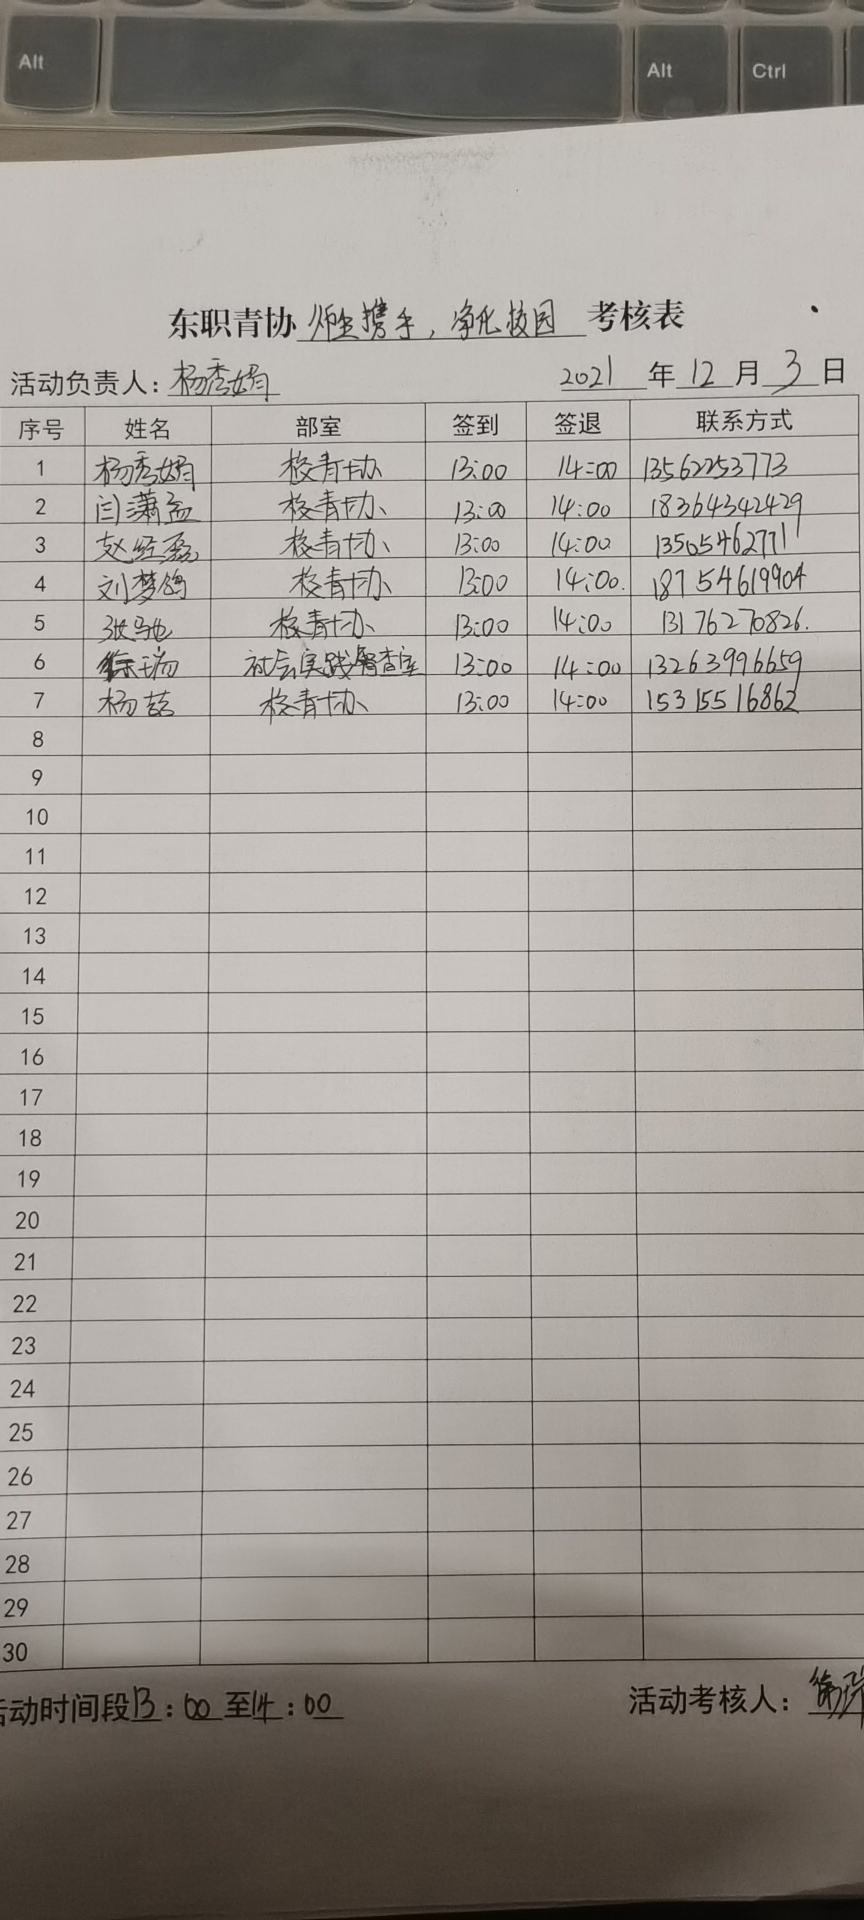 Alt Alt Ctrl
东职青协 师生携手，净化校园 考核表
活动负责人：杨秀娟 2021 年 12 月 3 日
序号 姓名 部室 签到 签退 联系方式
1 杨秀娟 校青协 13:00 14:00 13562253773
2 闫潇孟 校青协 13:00 14:00 18364342429
3 赵经磊 校青协 13:00 14:00 13505462771
4 刘梦鸽 校青协 13:00 14:00. 18754619904
5 张驰 校青协 13:00 14:00 13176270826.
6 徐瑞 社会实践督查室 13:00 14:00 13263996659
7 杨喆 校青协 13:00 14:00 15315516862
8
9
10
11
12
13
14
15
16
17
18
19
20
21
22
23
24
25
26
27
28
29
30
活动时间段13:00至14:00 活动考核人：